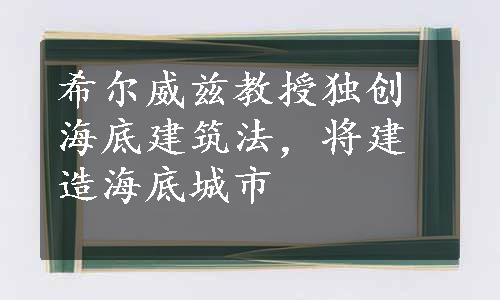 希尔威兹教授独创
海底建筑法，将建
造海底城市